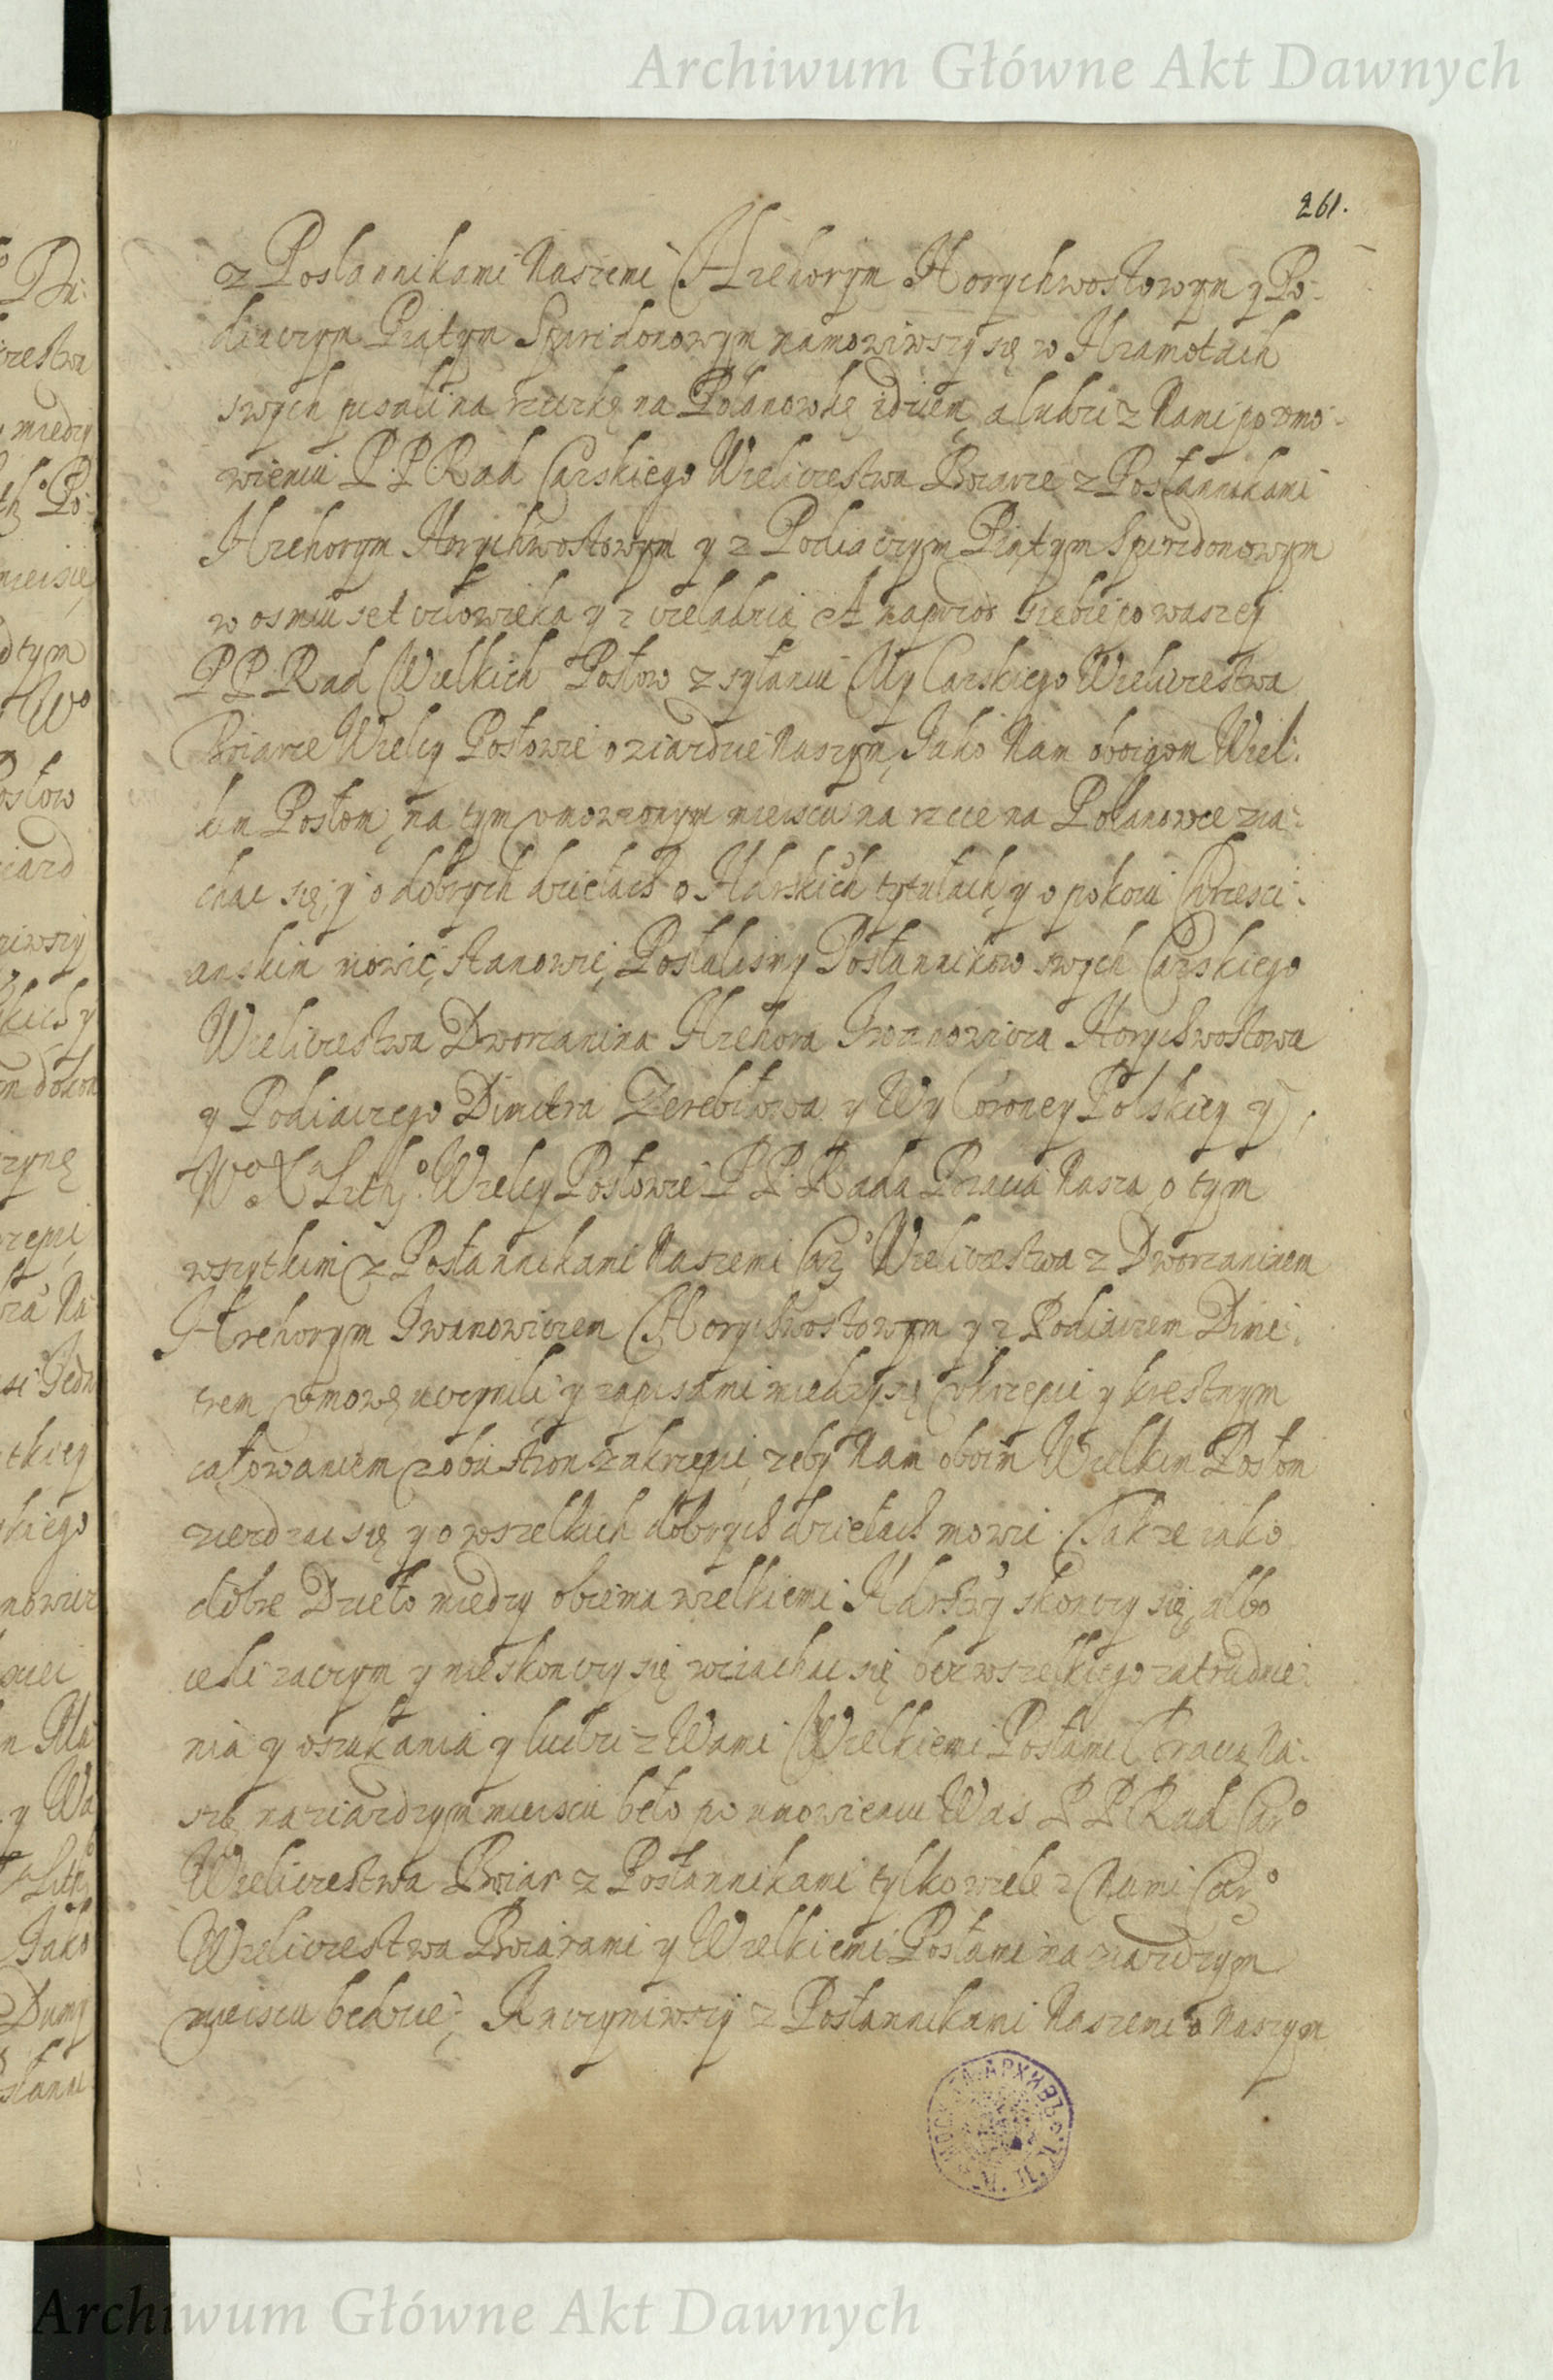 Archiwum Główne Akt Dawnych
261.
z Posłannikami Naszemi Hrehorym Horychwostowym y Po-
diaczym Piątym Spiridonowym namowiwszy się w Hramotach
swych pisali na rzeczkę na Polanowkę idziem, a ludzi z Nami po vmo-
wieniu P. P. Rad Carskiego Wieliczestwa Boiarze z Posłannikami
Hrehorym Horychwostowym y z Podiaczym Piątym Spiridonowym
w osmiu set człowieka y z czeladzią A naprzod siebie po waszey
P P. Rad Wielkich Posłow zsyłaniu My Carskiego Wieliczestwa
Boiarze Wielcy Posłowie o ziazdzie Naszym, Jako Nam oboigom Wiel-
kim Posłom, na tym vmowionym mieiscu na rzece na Polanowce zia-
chac się, y o dobrych dziełach o Hdrskich tytułach, y o pokoiu Chrzesci-
anskim mowić, stanowić, Posłalismy Posłannikow swych Carskiego
Wieliczestwa Dworzanina Hrehora Iwanowicza Horychwostowa
y Podiaczego Dimitra Zerebiłowa y Wy Corony Polskiey y
Wo X Lithgo. Wielcy Posłowie P P. Rada Bracia Nasza, o tym
wszytkim z Posłannikami Naszemi Carzo Wieliczestwa z Dworzaninem
Hrehorym Iwanowiczem Horychwostowym y z Podiaczem Dimi-
trem vmowę uczynili y zapisami miedzy się vkrzepić y krestnym
całowaniem z obu stron zakrzepić, zeby Nam oboim Wielkim Posłom
zierdzac się y o wszelkich dobrych dziełach mowić. Takze iako
dobre Dzieło miedzy obiema wielkiemi Hdrstwy skonczy się, albo
ieśli zaczym y nieskonczy się, rziachac się bez wszelkiego zatrudnie-
nia y oszukania y ludzi z Wami Wielkiemi Posłami Bracią Na-
szą na ziazdzym mieiscu beło po umowieniu Was P P. Rad Caro
Wieliczestwa Boiar z Posłannikami tylko wiele z Nami Carzo
Wieliczestwa Boiarami y Wielkiemi Posłami na ziazdzym
mieiscu bedzie, A uczyniwszy z Posłannikami Naszemi o Naszym
Archiwum Główne Akt Dawnych